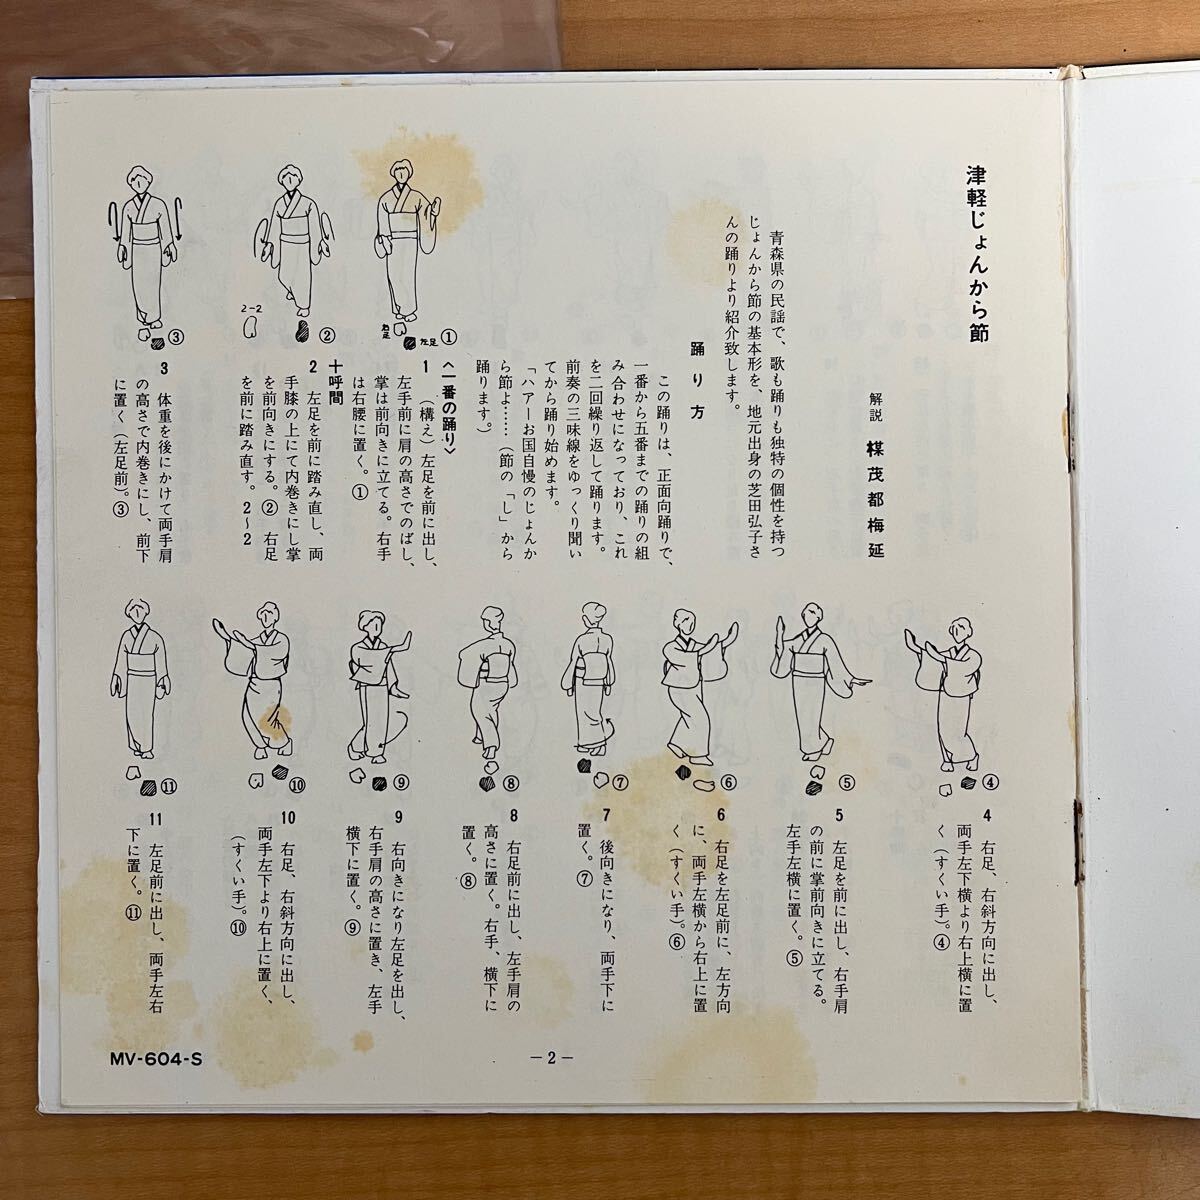 津軽じょんから節
解説 楳茂都梅延
青森県の民謡で、歌も踊りも独特の個性を持つ
じょんから節の基本形を、地元出身の芝田弘子さ
んの踊りより紹介致します。
踊り方
この踊りは、正面向踊りで、
一番から五番までの踊りの組
み合わせになっており、これ
を二回繰り返して踊ります。
前奏の三味線をゆっくり聞い
てから踊り始めます。
「ハアーお国自慢のじょんか
ら節よ……（節の「し」から
踊ります。）
〈一番の踊り〉
1 （構え）左足を前に出し、
左手前に肩の高さでのばし、
掌は前向きに立てる。右手
は右腰に置く。①
十呼間
2 左足を前に踏み直し、両
手膝の上にて内巻きにし掌
を前向きにする。② 右足
を前に踏み直す。2〜2
3 体重を後にかけて両手肩
の高さで内巻きにし、前下
に置く（左足前）。③
右足
左足
①
2-2
②
③
4 右足、右斜方向に出し、
両手左下横より右上横に置
く（すくい手）。④
5 左足を前に出し、右手肩
の前に掌前向きに立てる。
左手左横に置く。⑤
6 右足を左足前に、左方向
に、両手左横から右上に置
く（すくい手）。⑥
7 後向きになり、両手下に
置く。⑦
8 右足前に出し、左手肩の
高さに置く。右手、横下に
置く。⑧
9 右向きになり左足を出し、
右手肩の高さに置き、左手
横下に置く。⑨
10 右足、右斜方向に出し、
両手左下より右上に置く、
（すくい手）。⑩
11 左足前に出し、両手左右
下に置く。⑪
④
⑤
⑥
⑦
⑧
⑨
⑩
⑪
MV-604-S
－2－